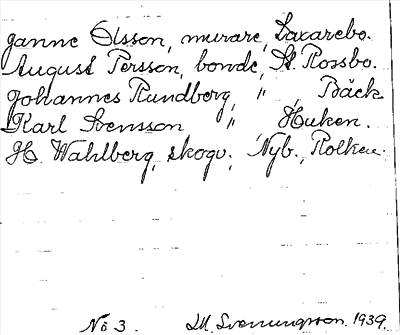 Janne Olsson, murare, Laxarebo.
August Persson, bonde, St. Rossbo.
Johannes Rundberg, " , Bäck
Karl Svensson, " , Huken.
H. Wahlberg, skogv., Nyb., Rolken.
No 3. M. Svenungsson. 1939.